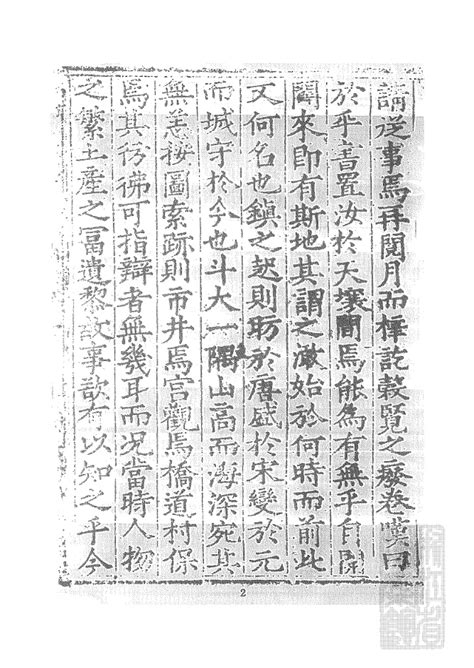 請从事焉再閱月而梓訖穀覽之廢卷嘆曰
於乎書置汝於天壤間焉能為有無乎自開
闢來即有斯地其謂之澉始於何時而前此
又何名也鎮之起則昉於唐盛於宋變於元
而城守於今也斗大一隅山高而海深宛其
無恙按圖索跡則市井焉官觀焉橋道村保
焉其彷彿可指辯者無幾耳而況當時人物
之繁土產之冨遺黎故事欲有以知之乎今
2